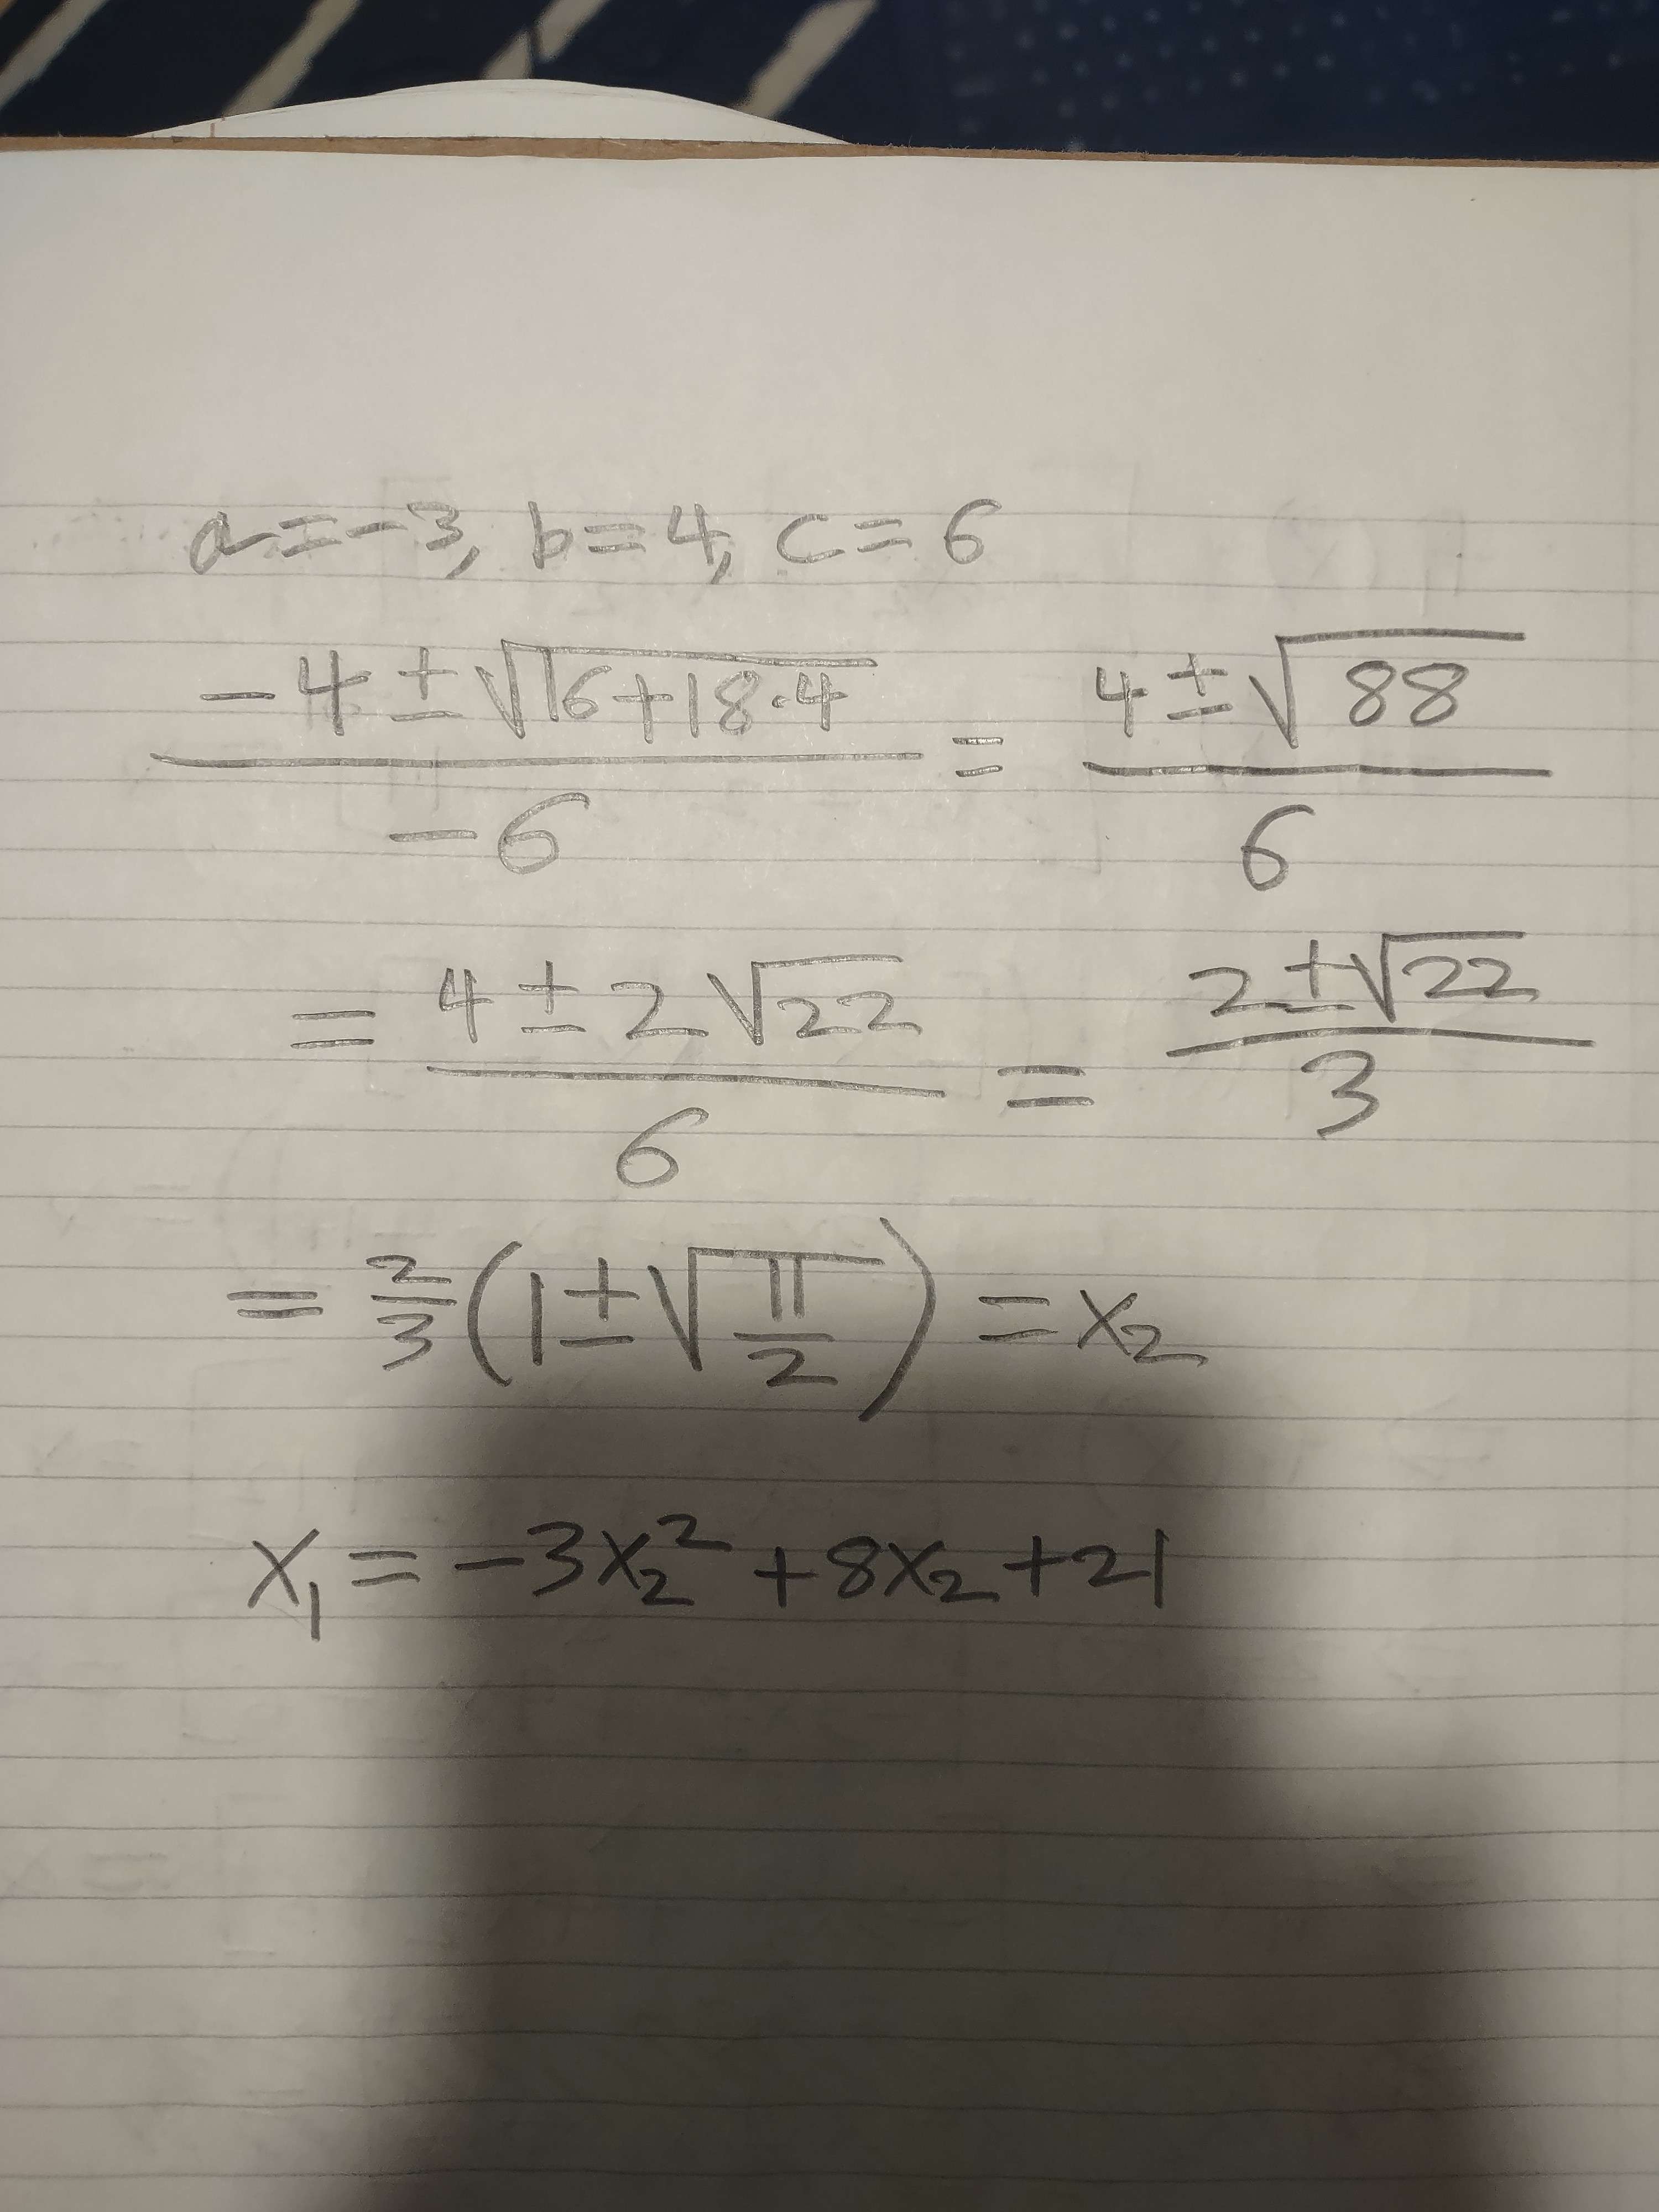 a=-3, b=4, c=6
(-4±√(16+18·4))/(-6) = (4±√88)/6
= (4±2√22)/6 = (2±√22)/3
= 2/3(1±√(11/2)) = x₂
x₁ = -3x₂² + 8x₂ + 21